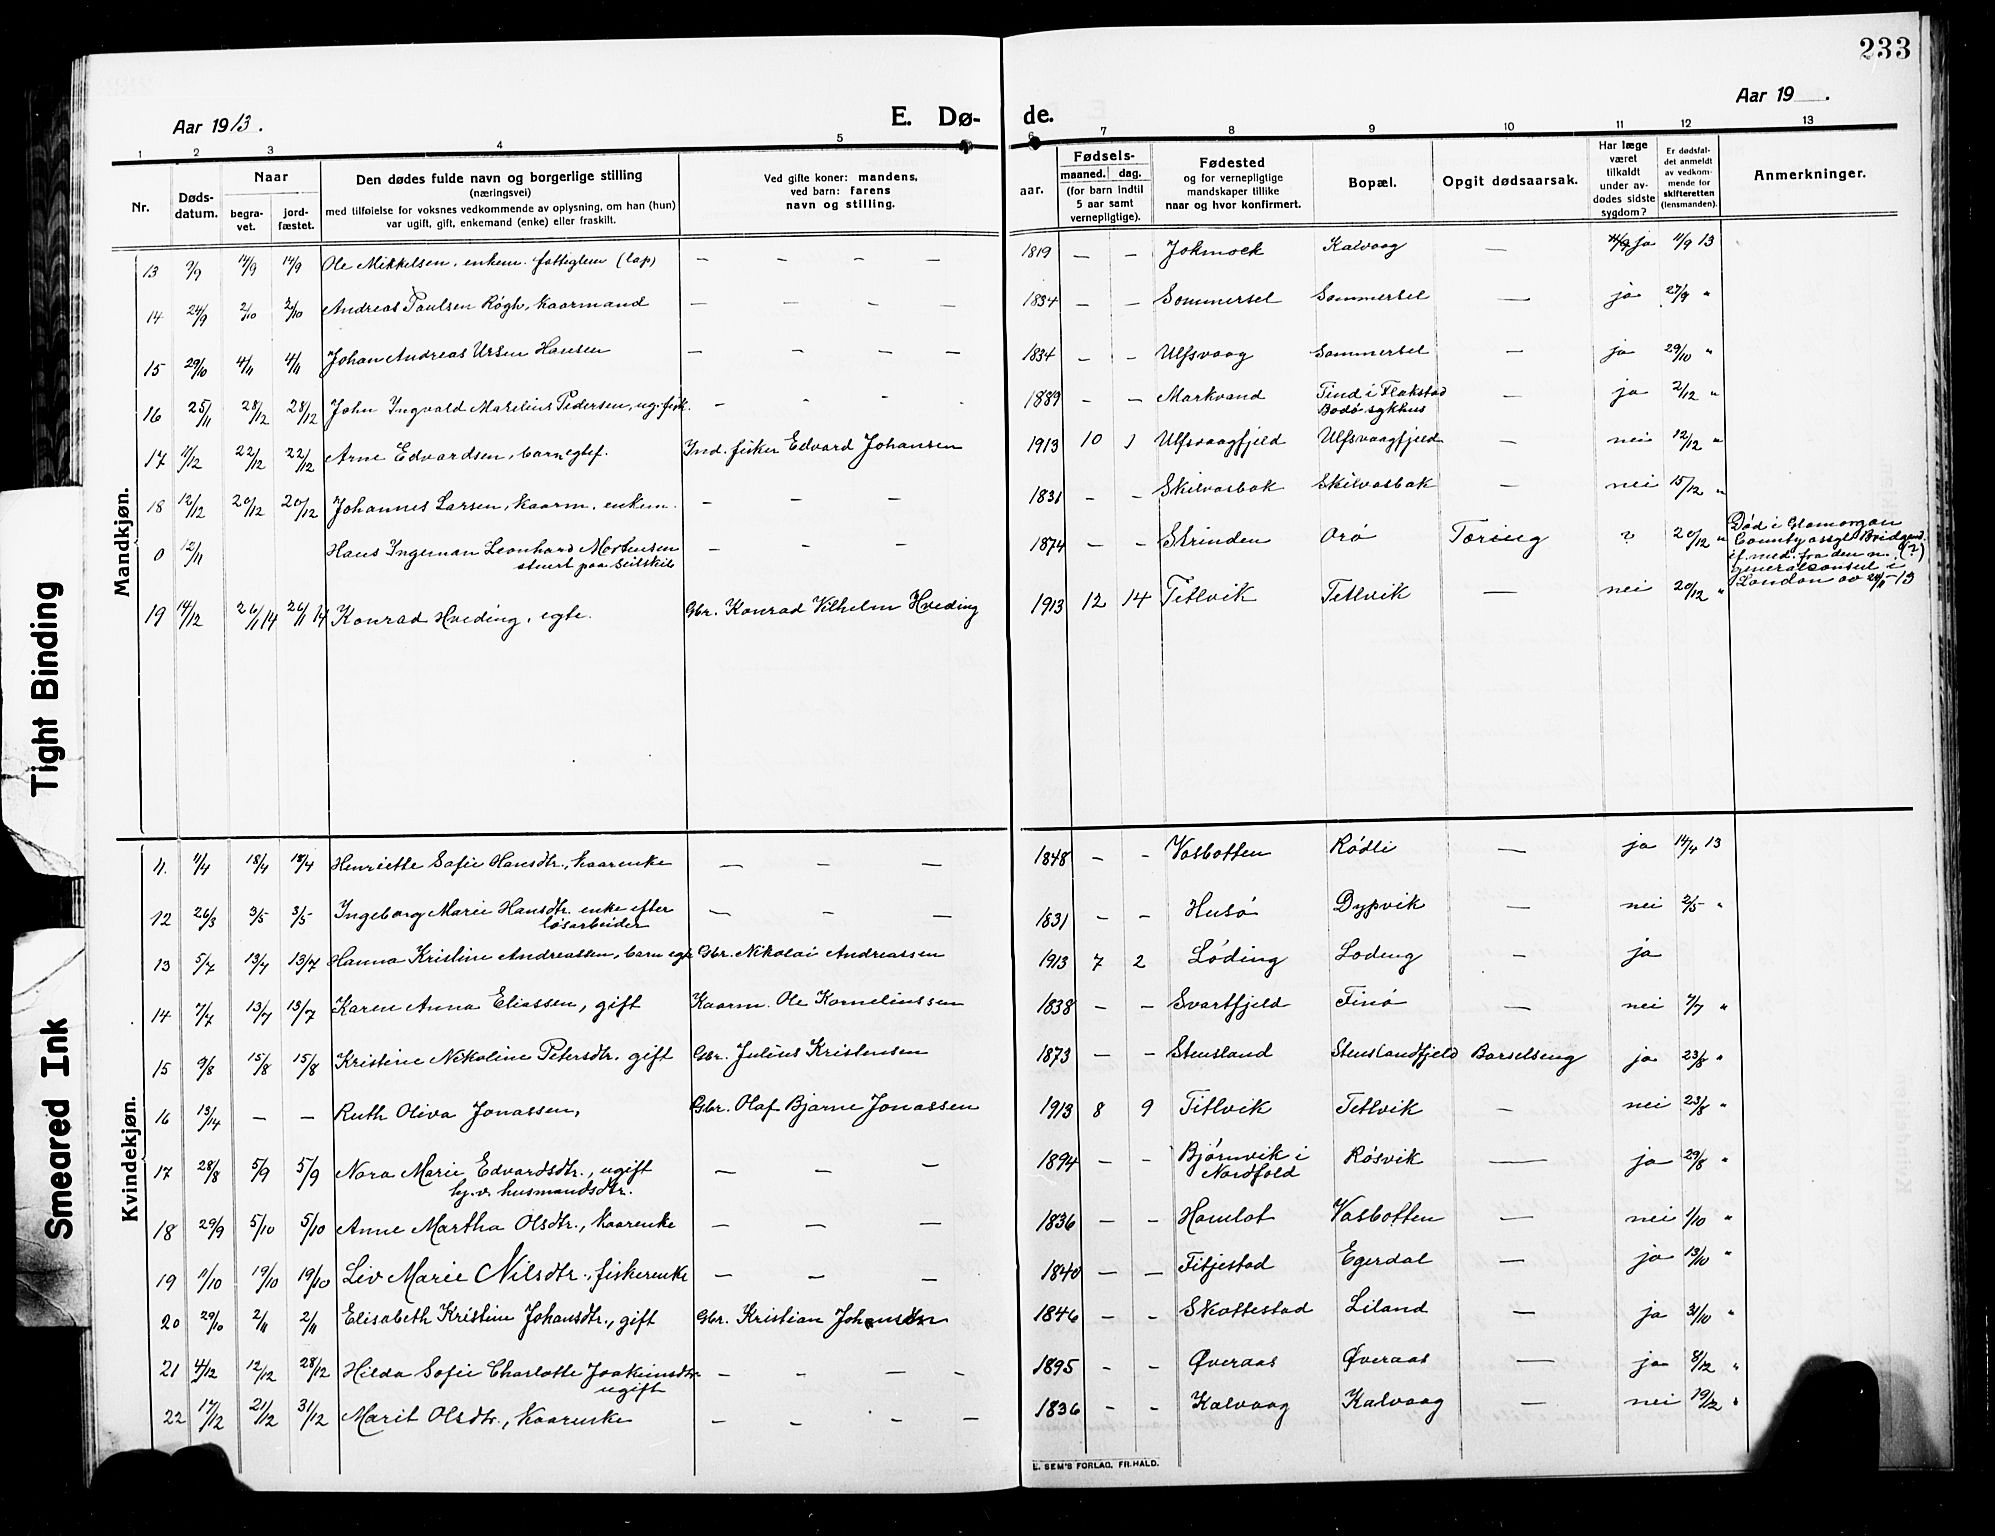 233
Aar 1913.
E. Dø-
de.
Aar 19 .
1 2 3 4 5 6 7 8 9 10 11 12 13
Nr.
Døds-
datum.
Naar
begra-
vet.
jord-
fæstet.
Den dødes fulde navn og borgerlige stilling
(næringsvei)
med tilføielse for voksnes vedkommende av oplysning, om han (hun)
var ugift, gift, enkemand (enke) eller fraskilt.
Ved gifte koner: mandens,
ved barn: farens
navn og stilling.
aar.
Fødsels-
maaned. dag.
(for barn indtil
5 aar samt
vernepligtige).
Fødested
og for vernepligtige
mandskaper tillike
naar og hvor konfirmert.
Bopæl.
Opgit dødsaarsak.
Har læge
været
tilkaldt
under av-
dødes sidste
sygdom?
Er dødsfal-
det anmeldt
av vedkom-
mende for
skifteretten
(lensmanden).
Anmerkninger.
Mandkjøn.
13 9/9 14/9 14/9 Ole Mikkelsen, enkem. fattiglem (lap) — — — — 1819 — — Jokmock Kalvaag — ja 11/9 13
14 24/9 2/10 2/10 Andreas Paulsen Røgh, kaarmand — — — — 1834 — — Sommersel Sommersel — ja 27/9 "
15 29/10 4/11 4/11 Johan Andreas Ursin Hansen — — — — 1834 — — Ulfsvaag Sommersel — ja 29/10 "
16 25/11 28/12 28/12 John Ingvald Marelius Pedersen, ug. fisk. — - - - 1889 — — Markvand Tind i Flakstad ja 2/12 "
Bodø sykhus
17 11/12 22/12 22/12 Arne Edvardsen, barn egtef. Ind. fisker Edvard Johansen 1913 10 1 Ulfsvaagfjeld Ulfsvaagfjeld — nei 12/12 "
18 12/12 20/12 20/12 Johannes Larsen, kaarm, enkem. — — — 1831 — — Skilvasbak Skilvasbak — nei 15/12 "
0 12/11 Hans Ingeman Leonhard Mortensen — — — 1874 — — Strinden Orø Tæring ? 20/12 "
stuert paa Seilskib
Død i Glamorgan
County assyl. Bridgend (?)
if. med. fra den n.
generalkonsul i
London av 20/11-13
19 14/12 26/1 14 26/1 14 Konrad Hveding, egte. Gbr. Konrad Vilhelm Hveding 1913 12 14 Tetlvik Tetlvik — nei 20/12 "
Kvindekjøn.
11. 11/4 18/4 18/4 Henriette Sofie Hansdtr., kaarenke — — — 1848 — — Vasbotten Rødli — ja 14/4 13
12 26/3 3/5 3/5 Ingeborg Marie Hansdtr. enke efter — — — 1831 — — Husø Dypvik — nei 2/5 "
løsarbeider
13 5/7 13/7 13/7 Hanna Kristine Andreassen, barn egte Gbr. Nikolai Andreassen 1913 7 2 Løding Løding — ja
14 7/7 13/7 13/7 Karen Anna Eliassen, gift Kaarm. Ole Korneliussen 1838 — — Svartfjeld Finø — nei 7/7 "
15 9/8 15/8 15/8 Kristine Nikoline Petersdtr. gift Gbr. Julius Kristensen 1873 — — Stensland Stenslandfjeld Barselseng ja 23/8 "
16 13/14 — — Ruth Oliva Jonassen, Gbr. Olaf Bjarne Jonassen 1913 8 9 Titlvik Tetlvik — nei 23/8 "
17 28/8 5/9 5/9 Nora Marie Edvardsdtr., ugift — — — 1894 — — Bjørnvik i Røsvik — ja 29/8 "
hj.v. husmandsdtr.
Nordfold
18 29/9 5/10 5/10 Anne Martha Olsdtr., kaarenke — — — 1836 — — Hamlot Vasbotten — nei 1/10 "
19 11/10 19/10 19/10 Liv Marie Nilsdtr., fiskerenke — — — 1840 — — Fitjestad Egerdal — ja 13/10 "
20 29/10 2/11 2/11 Elisabeth Kristine Johansdtr., gift Gbr. Kristian Johansen 1846 — — Skottestad Liland — ja 31/10 "
21 4/12 12/12 28/12 Hilda Sofie Charlotte Joakimsdtr — — — — 1895 — — Øveraas Øveraas — ja 8/12 "
ugift
22 17/12 21/12 31/12 Marit Olsdtr., kaarenke — — — — 1836 — — Kalvaag Kalvaag — nei 19/12 "
E. SEM'S FORLAG, FR.HALD.
Tight Binding
Smeared Ink